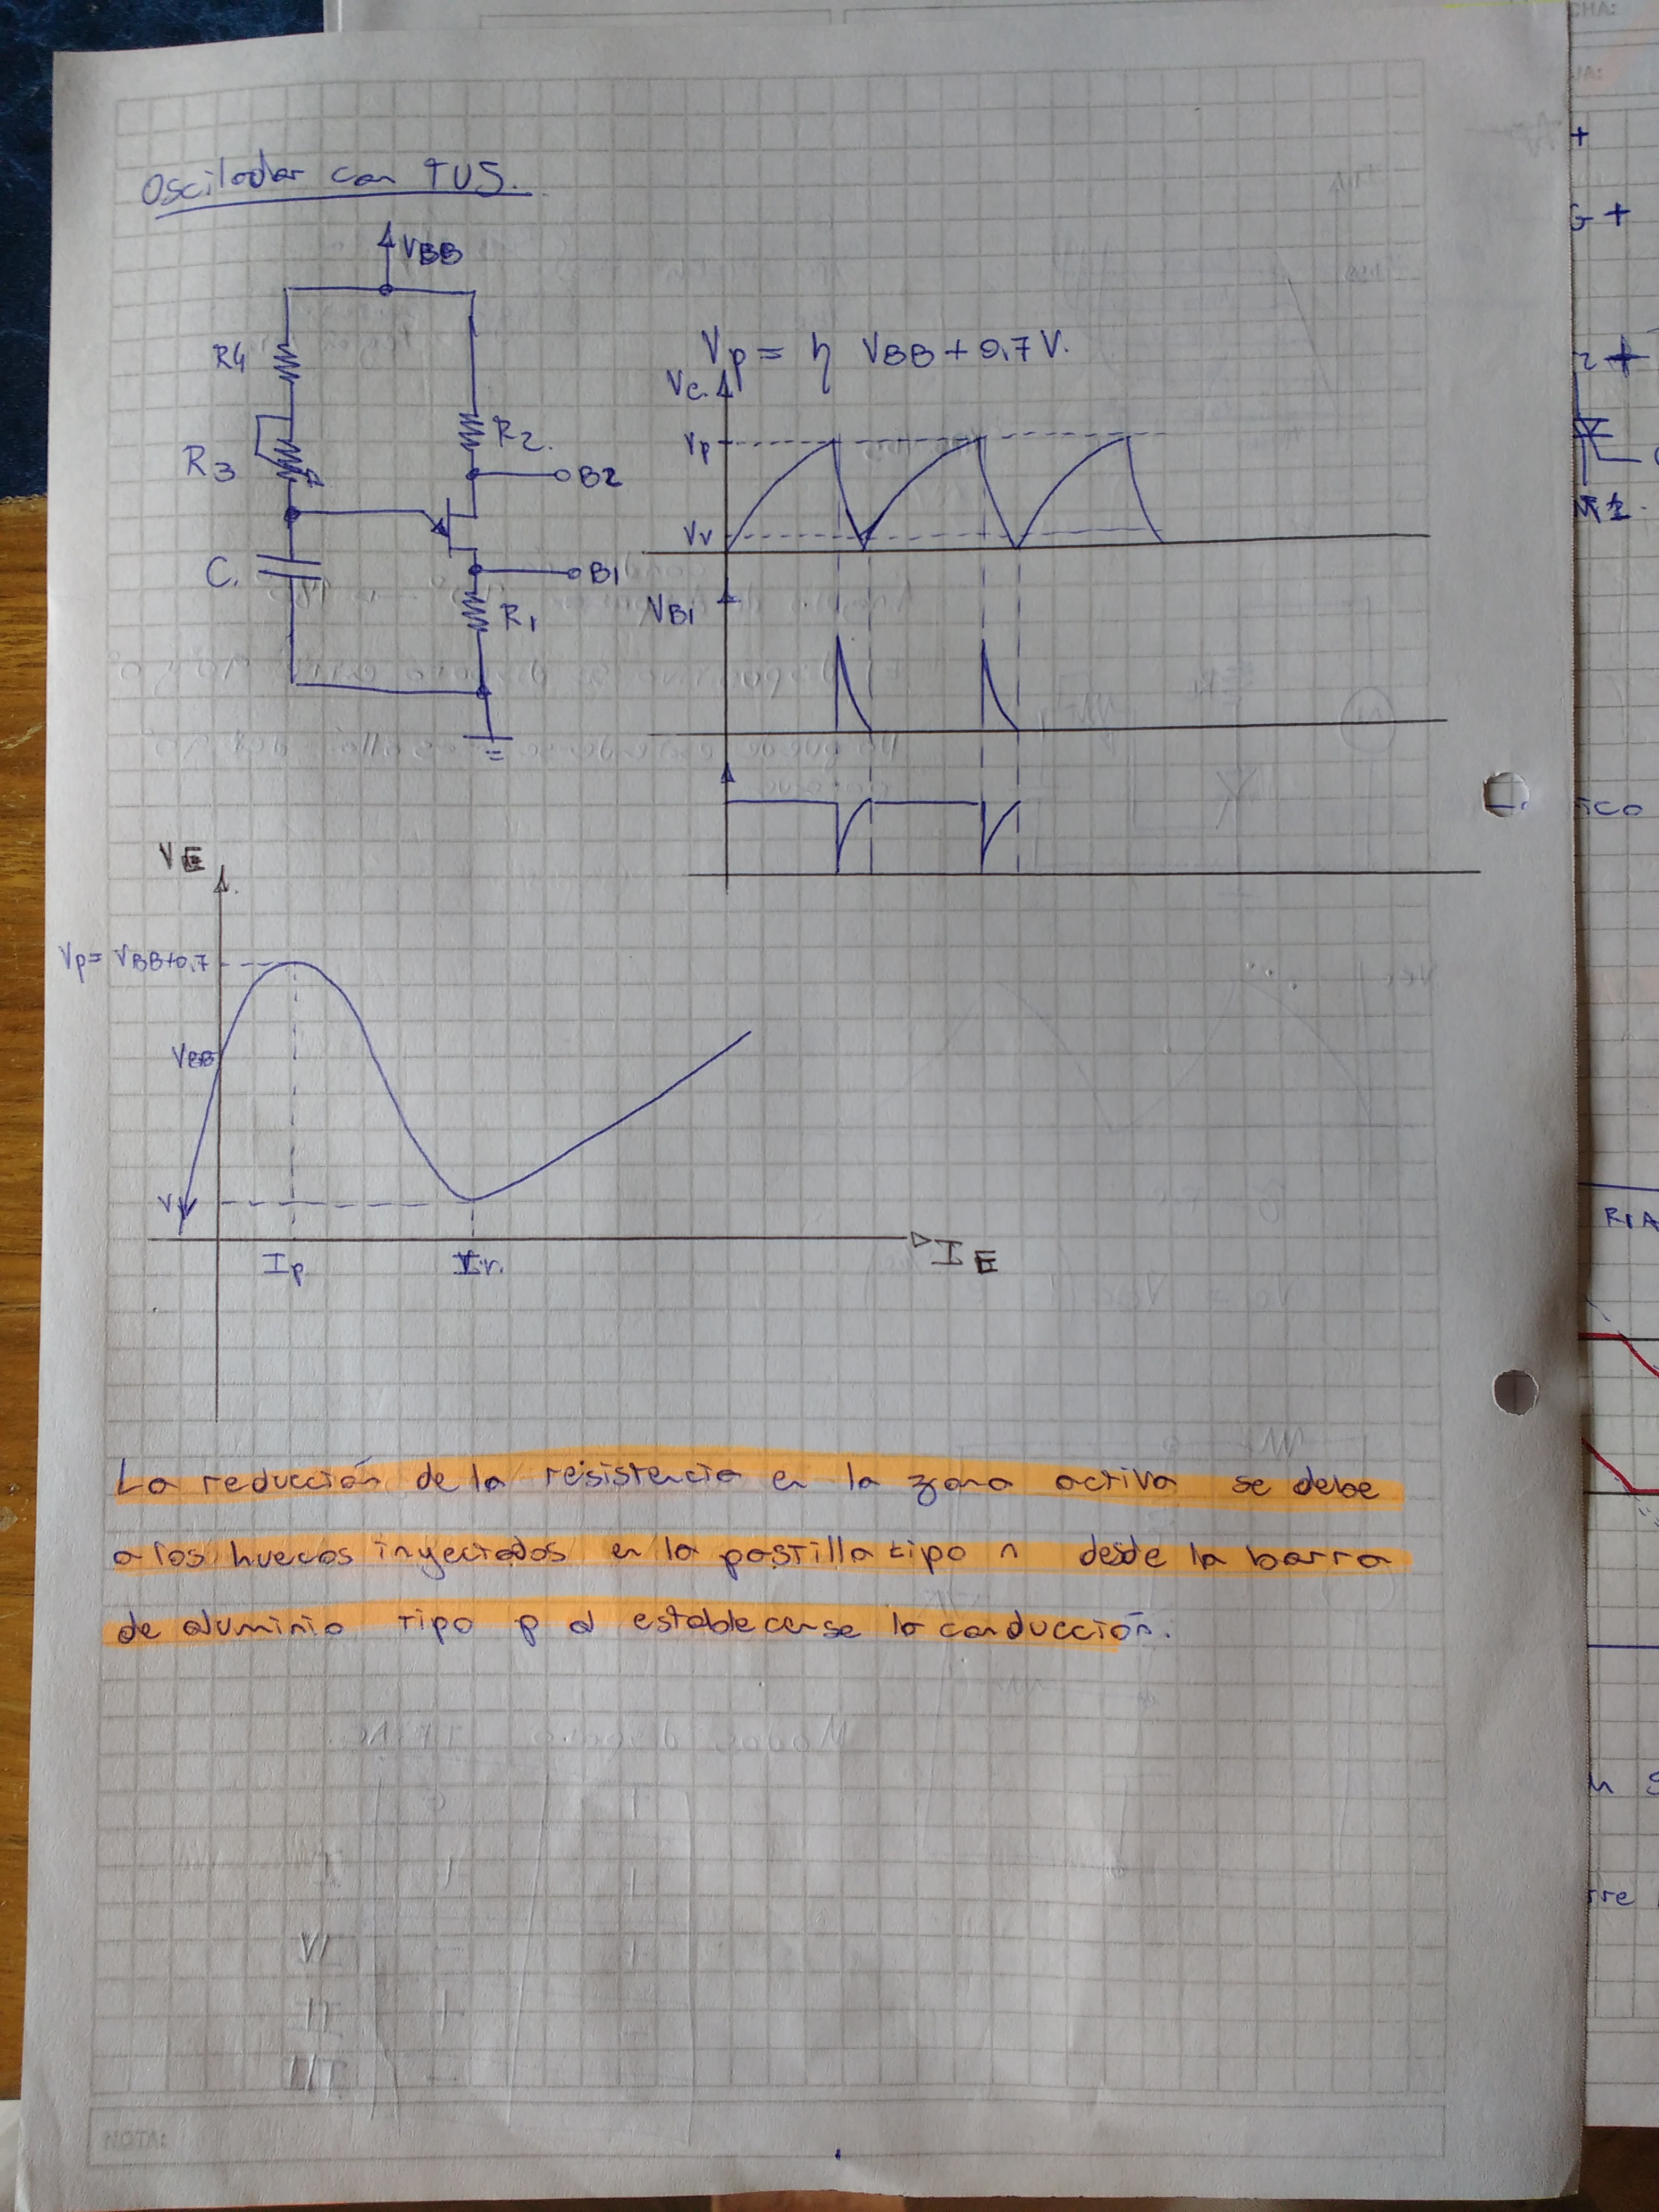 Oscilador con TUJ.
VBB
R4
R3
R2.
B2
C.
B1
R1
Vp = η VBB + 0.7 V.
Vc.
Vp
Vv
VB1
VE
Vp= VBB+0.7
VBB
Vv
Ip
Iv.
IE
La reducción de la resistencia en la zona activa se debe
a los huecos inyectados en la pastilla tipo n desde la barra
de aluminio tipo p al establecerse la conducción.
NOTA:
CHA:
JA:
+
G +
2 +
M1.
ico
RIA